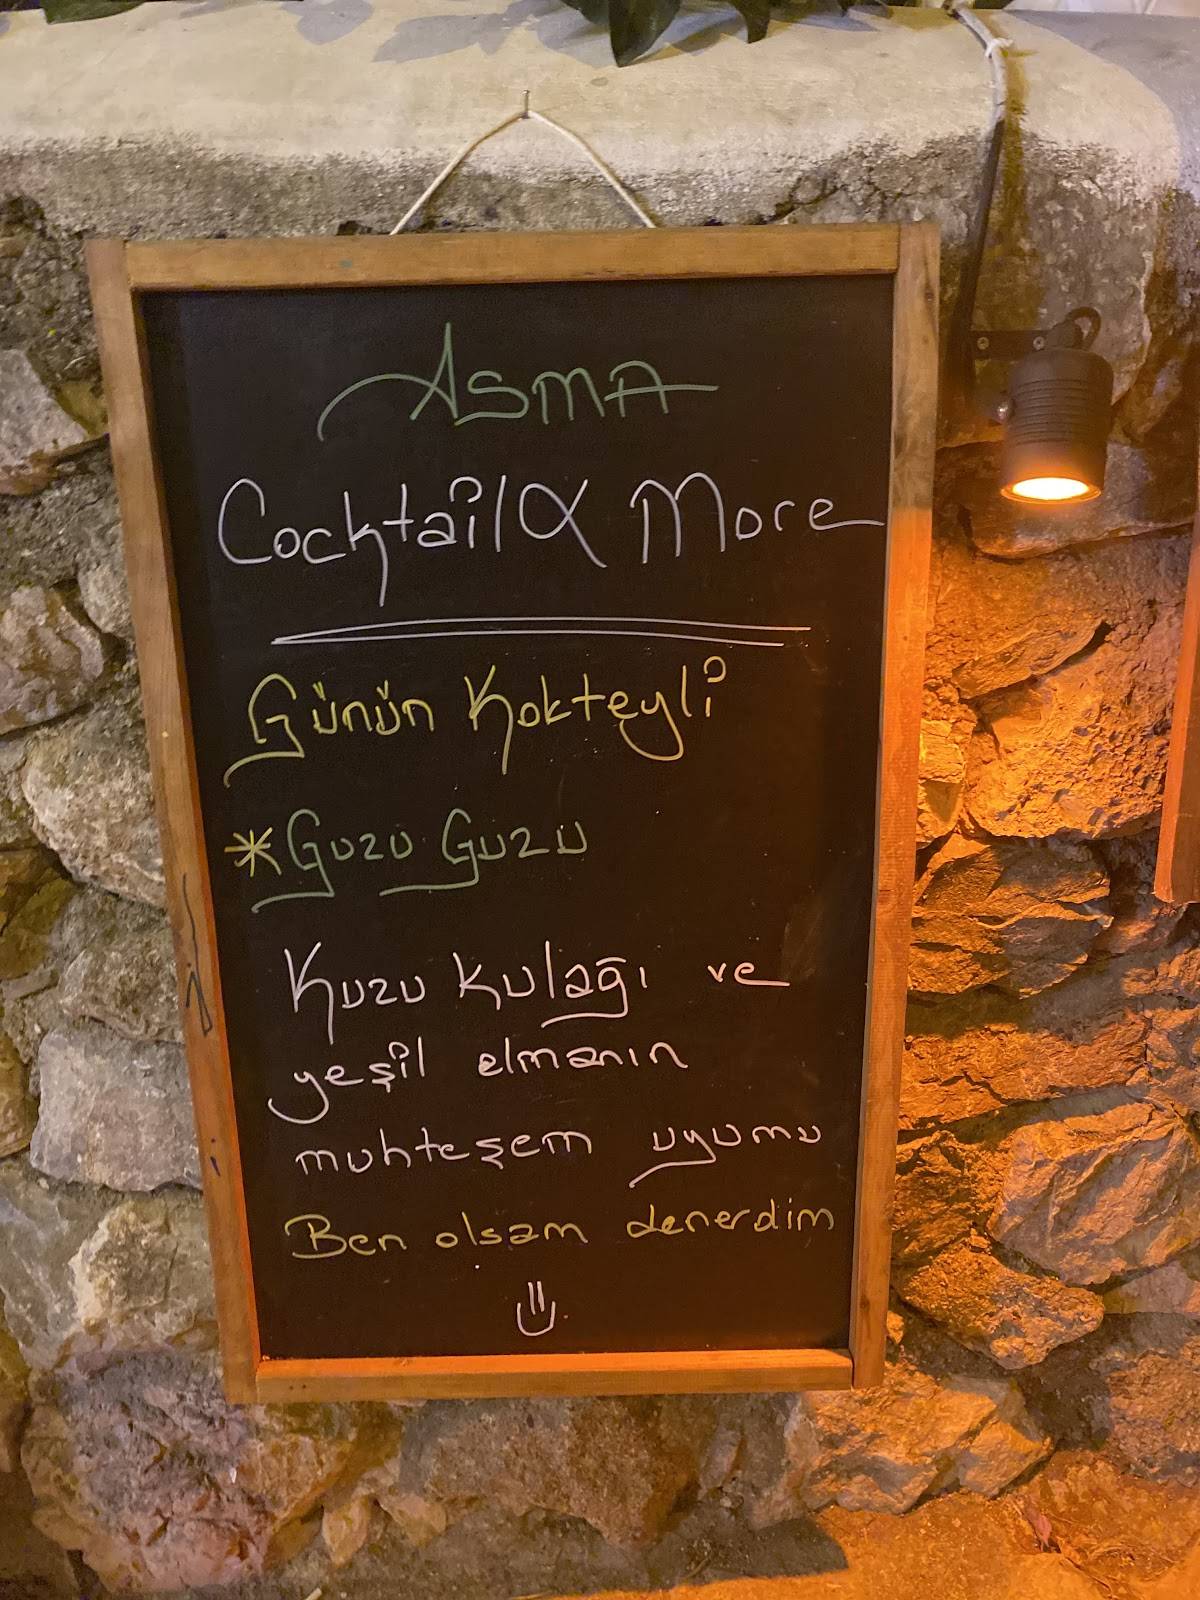 ASMA
Cocktail & More
Günün Kokteyli
*Guzu Guzu
Kuzu kulağı ve
yeşil elmanın
muhteşem uyumu
Ben olsam denerdim